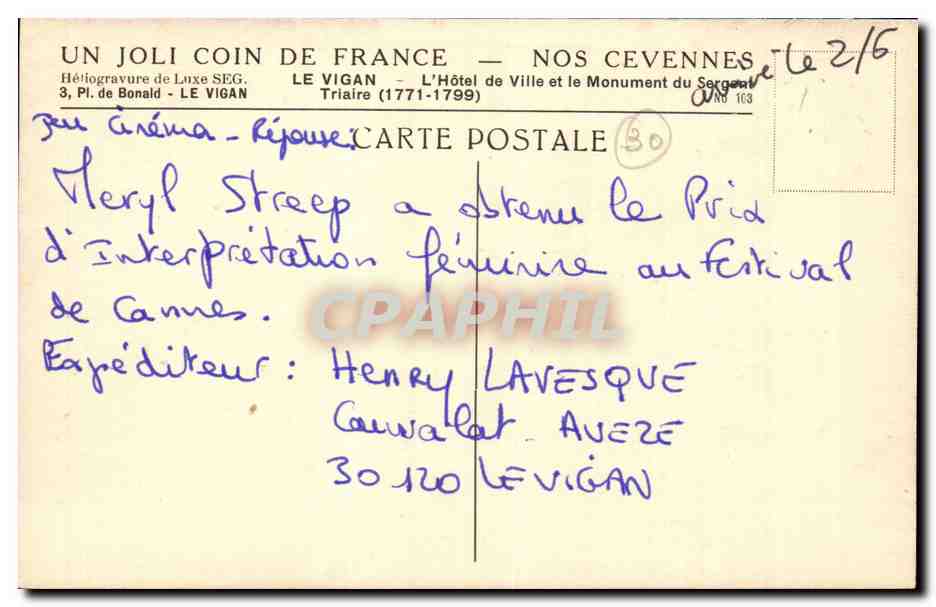 UN JOLI COIN DE FRANCE — NOS CEVENNES
Héliogravure de Luxe SEG. LE VIGAN - L'Hôtel de Ville et le Monument du Sergent
3, Pl. de Bonald - LE VIGAN Triaire (1771-1799) No 163
arrivé le 2/6
Jeu Cinéma - Réponse:
CARTE POSTALE
30
Meryl Streep a obtenu le Prix
d'Interprétation féminine au Festival
de Cannes.
CPAPHIL
Expéditeur : Henry LAVESQUE
Cauvalat - AVEZE
30120 LE VIGAN